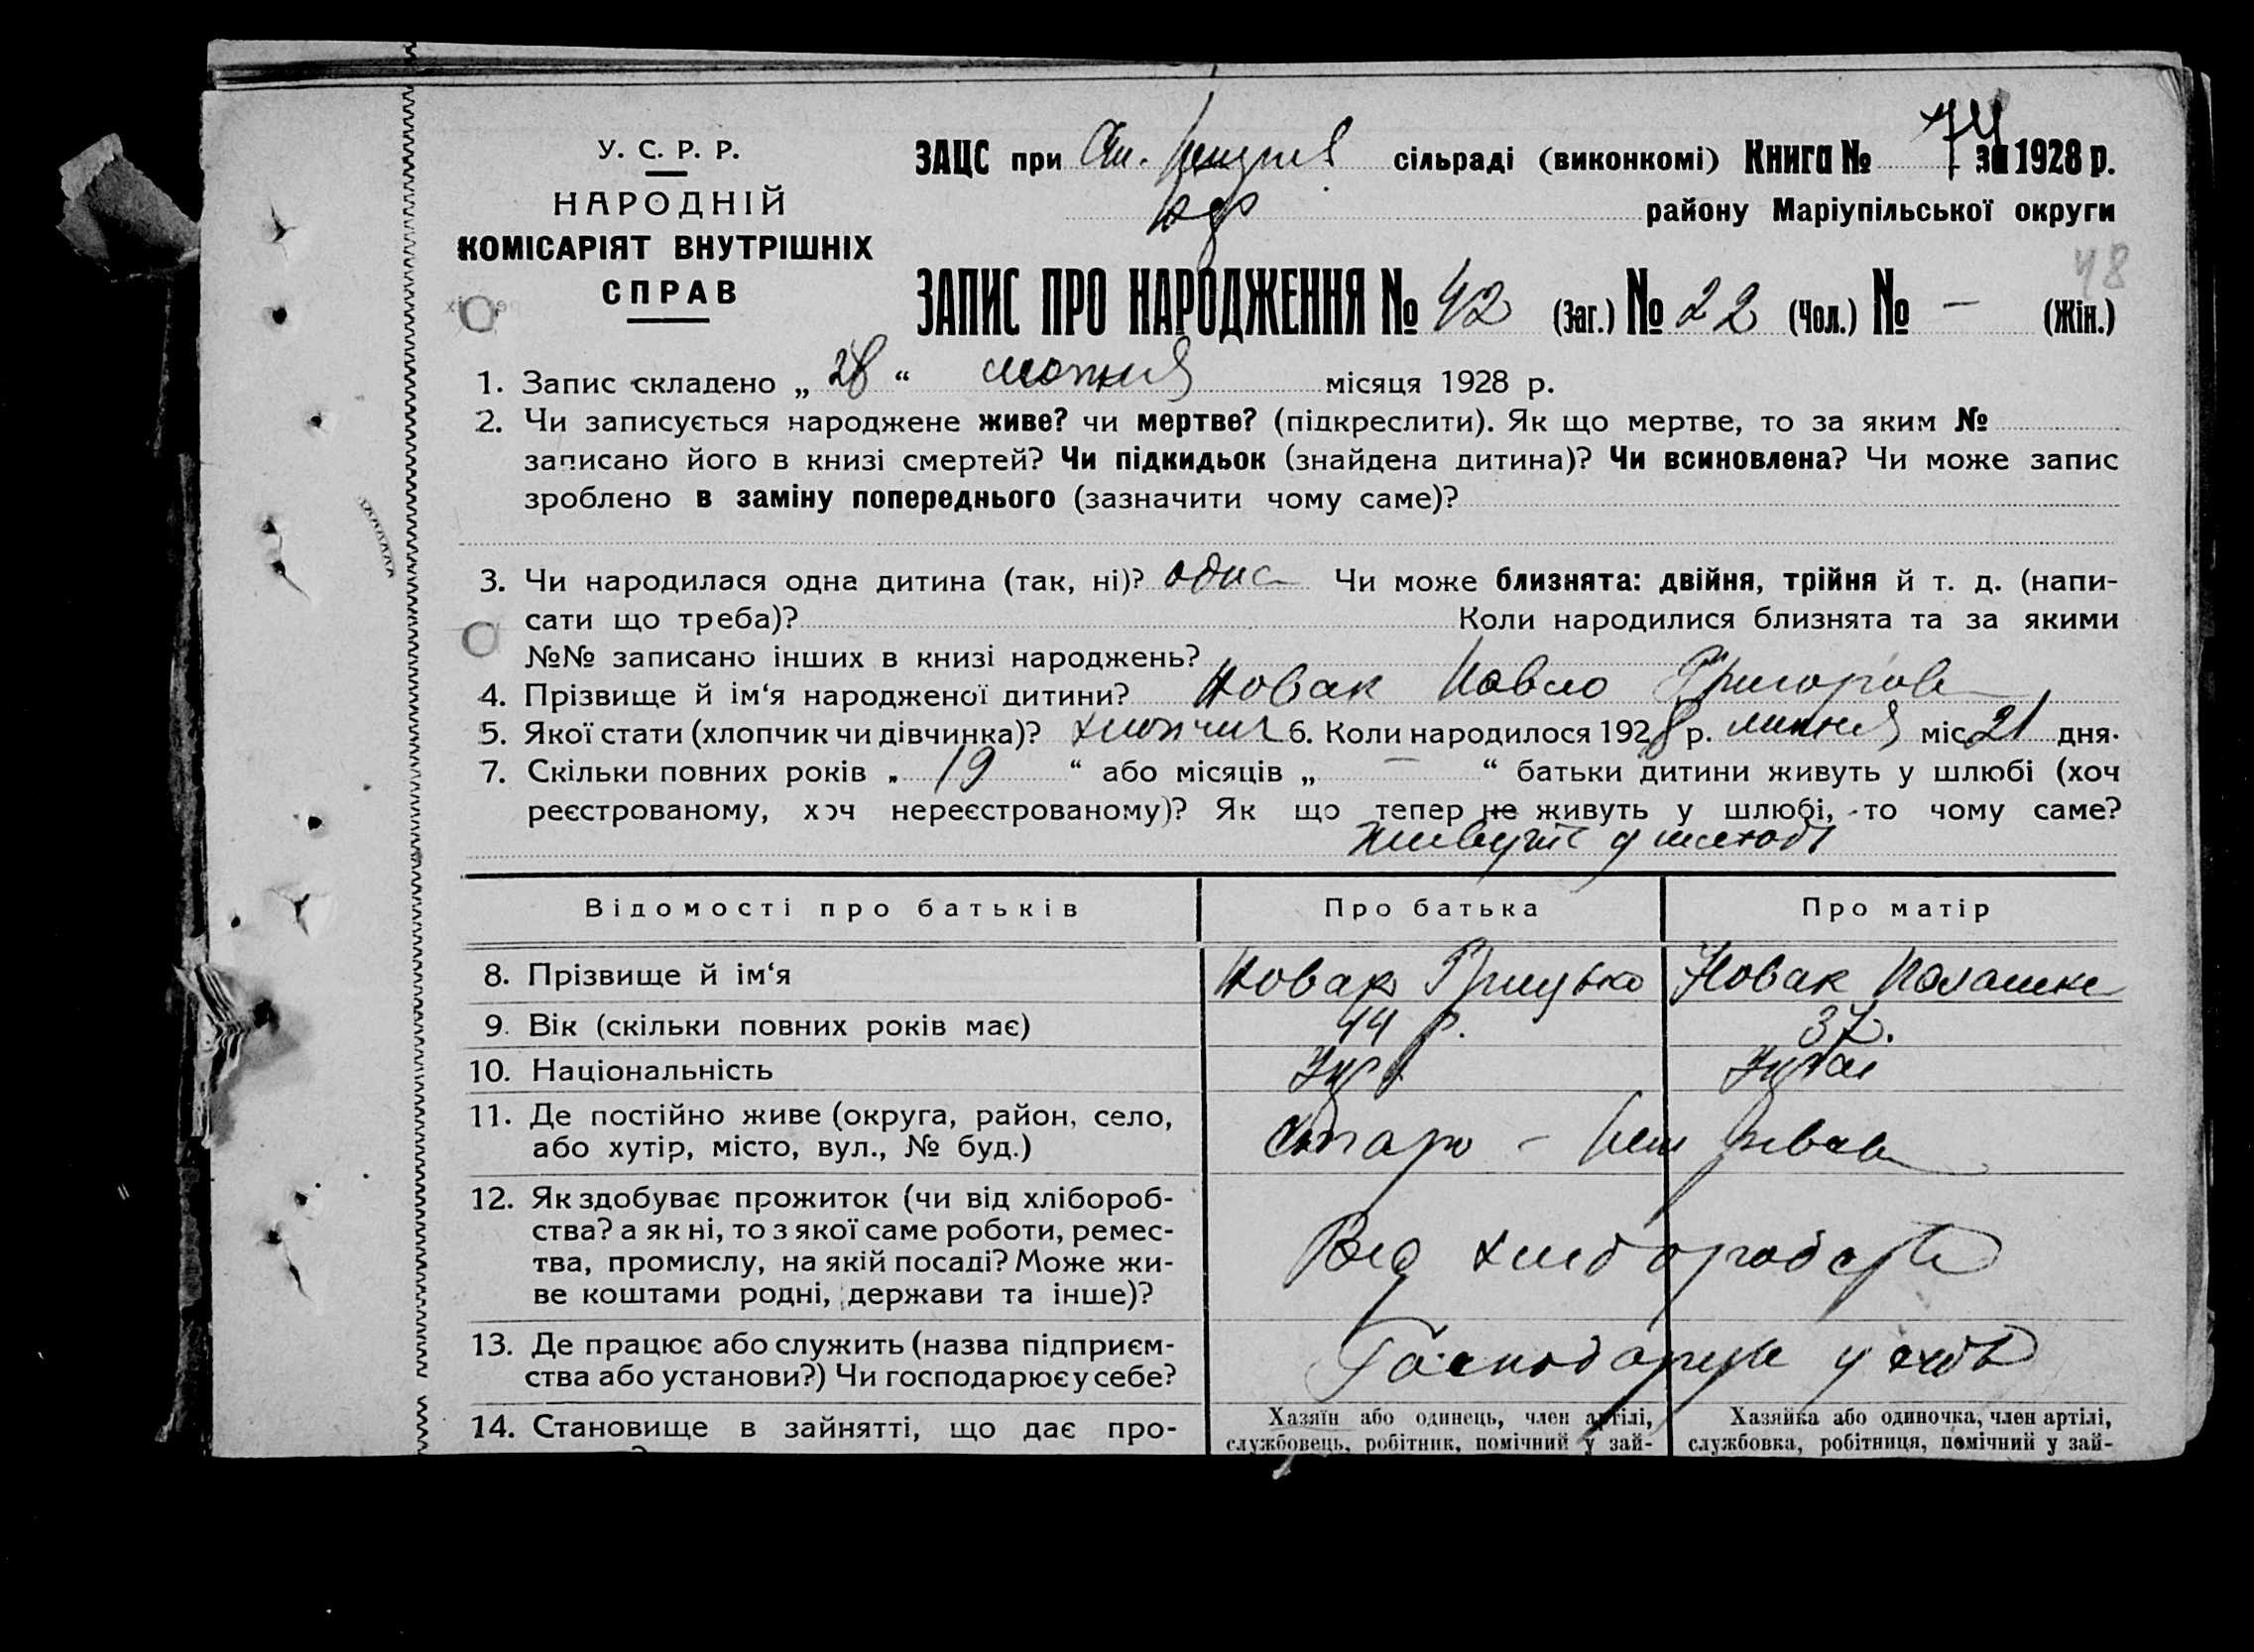 У. С. Р. Р.
НАРОДНІЙ
КОМІСАРІЯТ ВНУТРІШНІХ
СПРАВ
ЗАЦС при Ст. сільраді (виконкомі) Книга № за 1928 р.
району Маріупільської округи
48
ЗАПИС ПРО НАРОДЖЕННЯ № 42 (Заг.) № 22 (Чол.) № — (Жін.)
1. Запис складено „ 28 “ місяця 1928 р.
2. Чи записується народжене живе? чи мертве? (підкреслити). Як що мертве, то за яким №
записано його в книзі смертей? Чи підкидьок (знайдена дитина)? Чи всиновлена? Чи може запис
зроблено в заміну попереднього (зазначити чому саме)?
3. Чи народилася одна дитина (так, ні)? одна Чи може близнята: двійня, трійня й т. д. (напи-
сати що треба)? Коли народилися близнята та за якими
№№ записано інших в книзі народжень?
4. Прізвище й ім‘я народженої дитини? Новак Павло Григоров
5. Якої стати (хлопчик чи дівчинка)? хлопчик 6. Коли народилося 1928 р. липня міс. 21 дня.
7. Скільки повних років „ 19 “ або місяців „ — “ батьки дитини живуть у шлюбі (хоч
реєстрованому, хоч нереєстрованому)? Як що тепер не живуть у шлюбі, то чому саме?
живуть у шлюбі
Відомості про батьків Про батька Про матір
8. Прізвище й ім‘я Новак Грицько Новак Палашка
9. Вік (скільки повних років має) 44 р. 37.
10. Національність Укр
11. Де постійно живе (округа, район, село,
або хутір, місто, вул., № буд.) Старо -
12. Як здобуває прожиток (чи від хлібороб-
ства? а як ні, то з якої саме роботи, ремес-
тва, промислу, на якій посаді? Може жи-
ве коштами родні, держави та інше)? Від хліборобства
13. Де працює або служить (назва підприєм-
ства або установи?) Чи господарює у себе? Господарює у себе
14. Становище в зайнятті, що дає про-
Хазяїн або одинець, член артілі, Хазяйка або одиночка, член артілі,
службовець, робітник, помічний у зай- службовка, робітниця, помічний у зай-